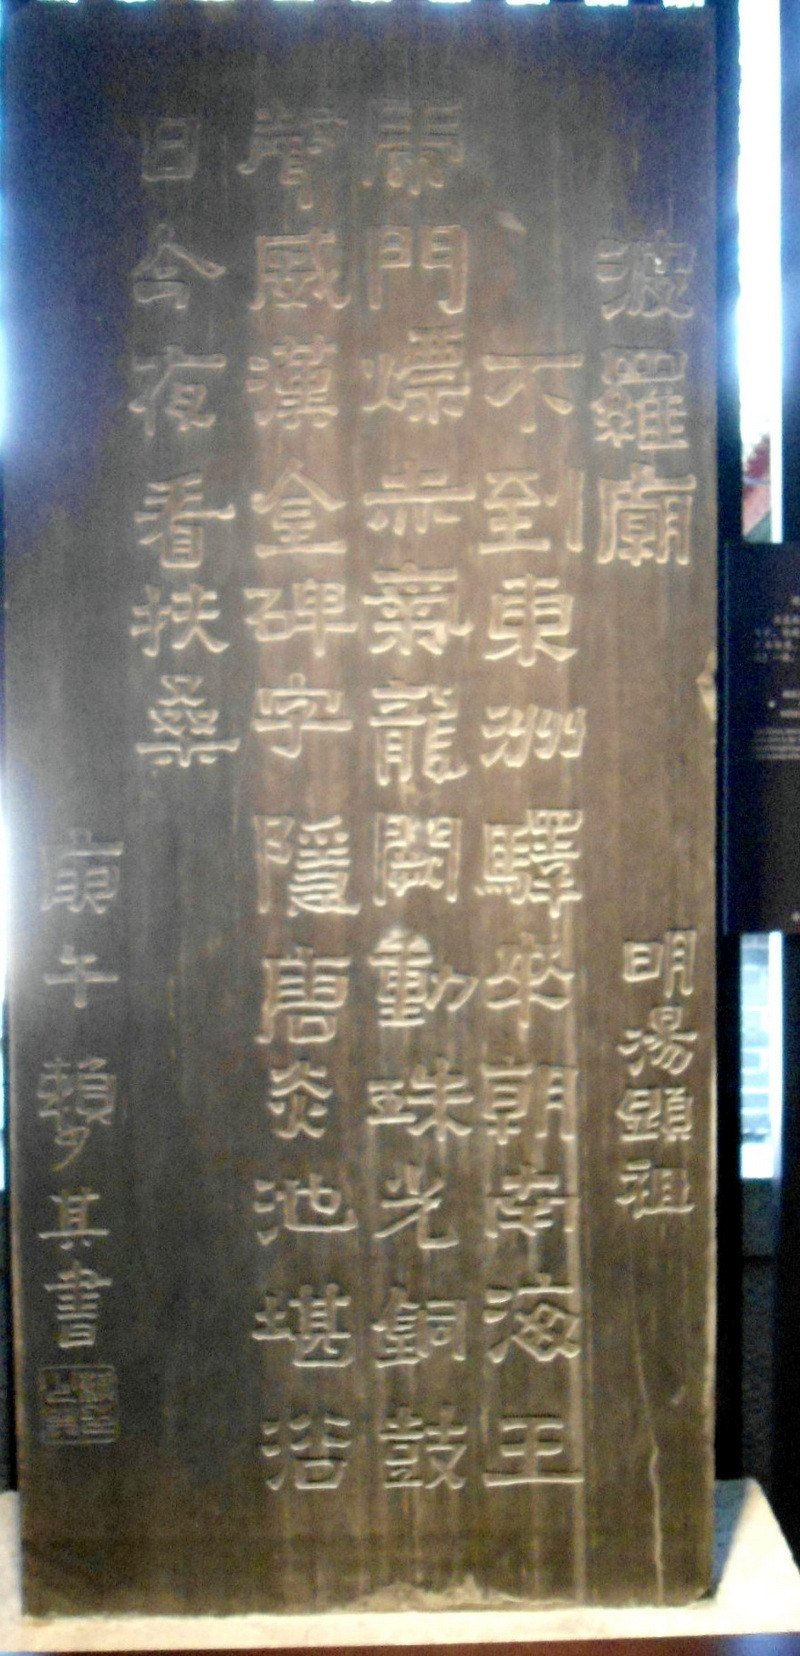 波羅廟 明湯顯祖
不到東洲驛來朝南海王
門熛赤氣龍闕動珠光銅鼓
聲威漢金碑字隱唐炎池堪浴
日今夜看扶桑
庚午 賴少其書